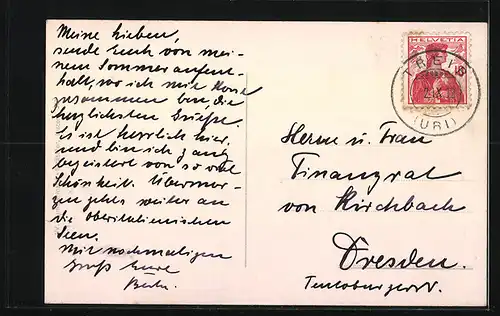 Meine Lieben,
sende Euch von mei-
nem Sommeraufent-
halt, wo ich mit
zusammen bin, die
herzlichsten Grüße.
Es ist herrlich hier,
und bin ich ganz
begeistert von so viel
Schönheit. Übermor-
gen gehts weiter an
die oberitalienischen
Seen.
Mit nochmaligen
Gruß Eure
HELVETIA
(URI)
Herrn u. Frau
Finanzrat
von Kirchbach
Dresden.